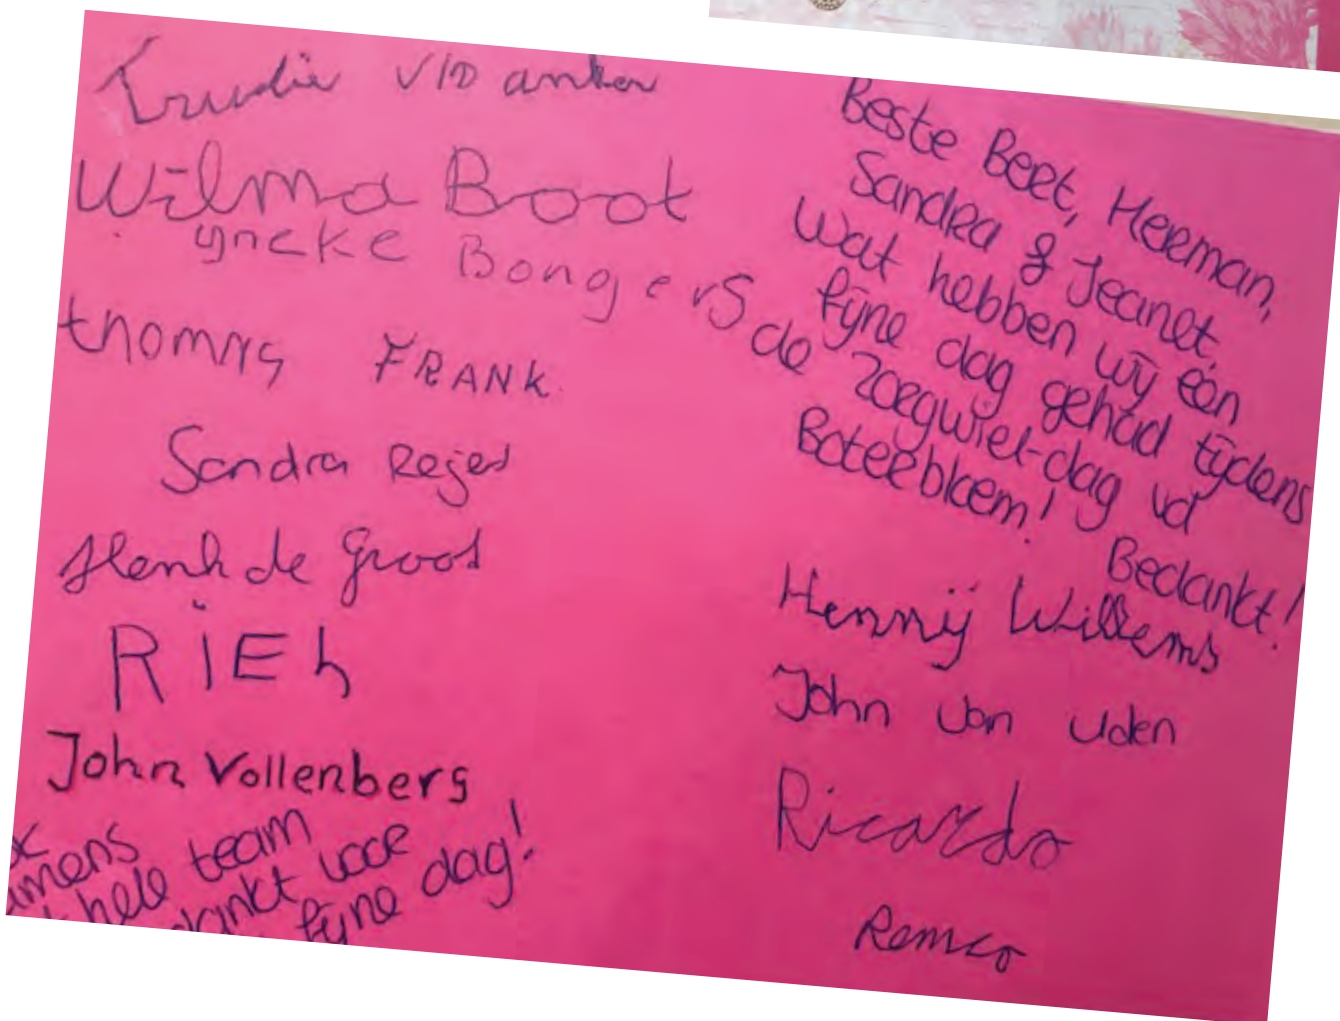 Trudie v/D anker
Wilma Boot
yncke Bongers
thomas FRANK.
Sandra Rejes
Henk de Groot
RiEh
John Vollenbergs
hele team
voor
fijne dag!
Beste Bert, Herman,
Sandra & Jeanet,
Wat hebben wij één
fijne dag gehad tijdens
de zorgwiel-dag vd
Boterbloem!
Bedankt!
Hennij Willems
John van Uden
Ricardo
Remco